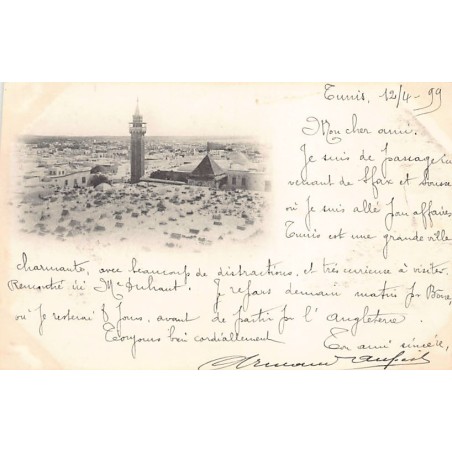 Tunis, 12/4-99
Mon cher ami.
Je suis de passage ici
venant de Sfax et Sousse
où je suis allé pour affaires
Tunis est une grande ville
charmante, avec beaucoup de distractions, et très curieuse à visiter.
Rencontré ici Mr Duhaut. Je repars demain matin pr
où je resterai 8 jours, avant de partir pr l'Angleterre.
Toujours bien cordiallement
Ton ami sincère,
Armand